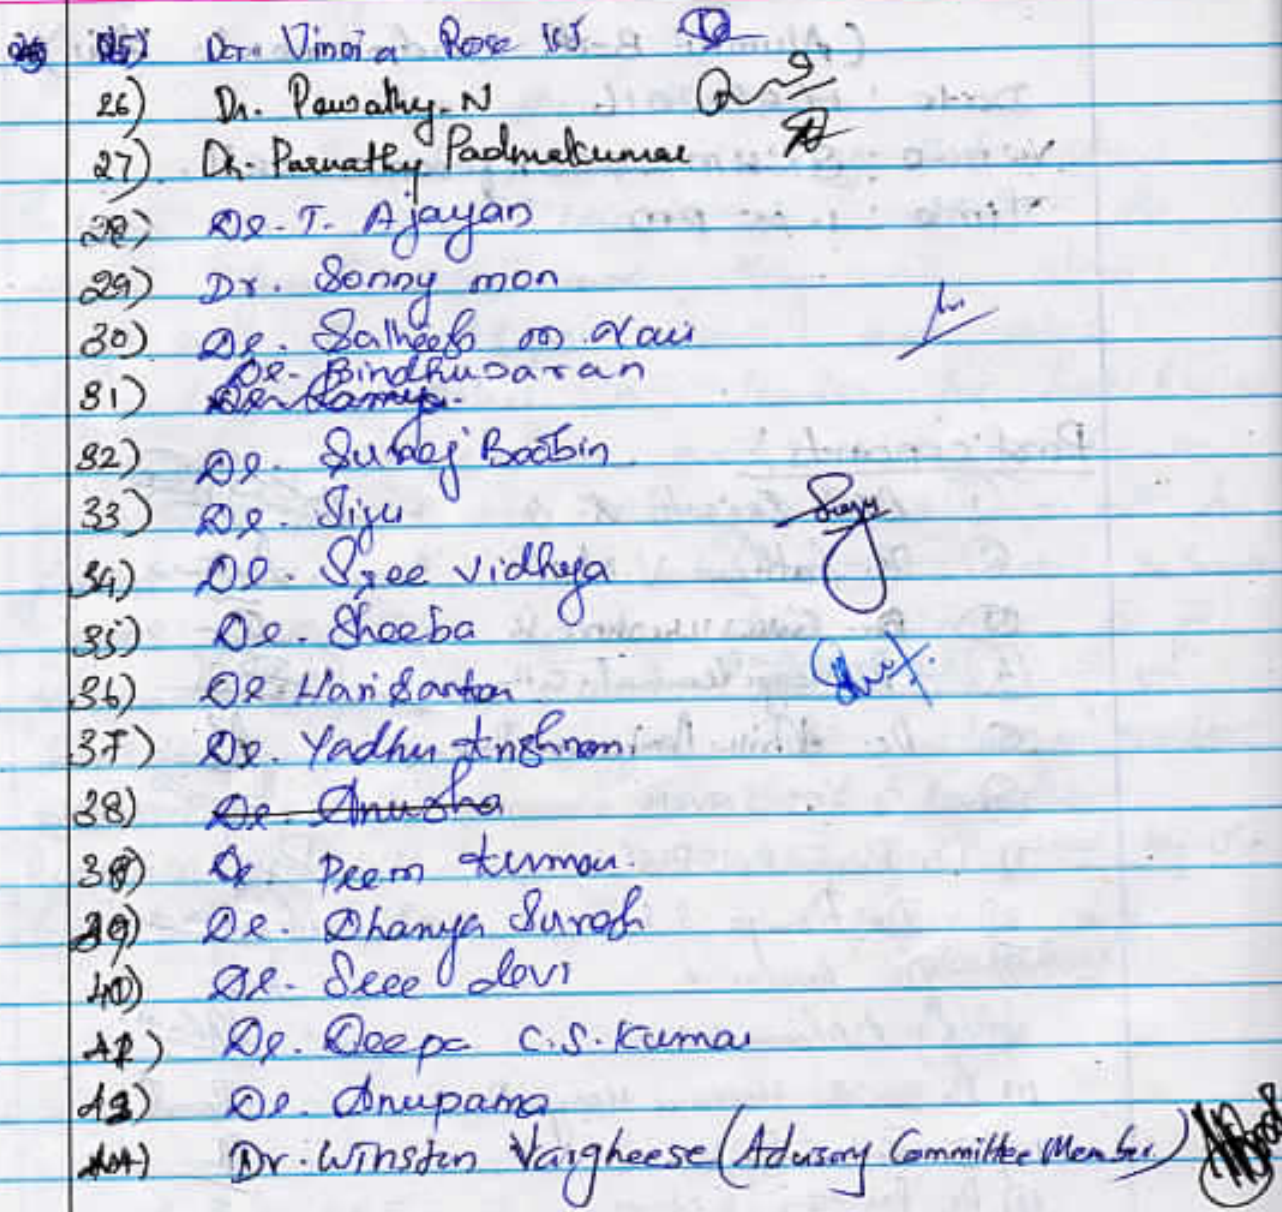 25) Dr. Vinola Rose KJ
26) Dr. Parvathy. N
27) Dr. Parvathy Padmakumar
28) Dr. T. Ajayan
29) Dr. Sonny mon
30) Dr. Satheesh m. Nair
Dr. Bindhusaran
31) Dr. Ramya.
32) Dr. Suraj Boobin
33) Dr. Siju
34) Dr. Sree Vidhya
35) Dr. Sheeba
36) Dr. Hari Sankar
37) Dr. Yadhu krishnan
38) Dr. Anusha
38) Dr. Prem kumar.
39) Dr. Dhanya Suresh
40) Dr. Sree devi
41) Dr. Deepa C.S. Kumar
Dr. Anupama
Dr. Winston Vargheese (Advisory Committee Member)